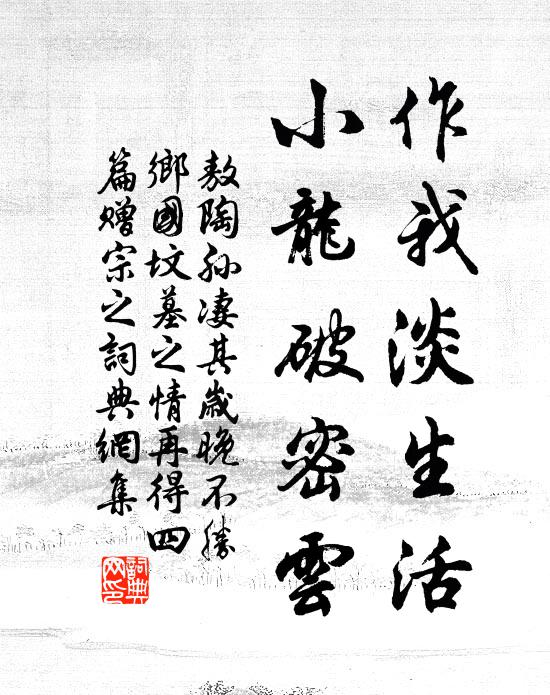 作我淡生活
小龍破密雲
敖陶孫淒其歲晚不勝
鄉國墳墓之情再得四
篇贈宗之詞典網集
詞典網印